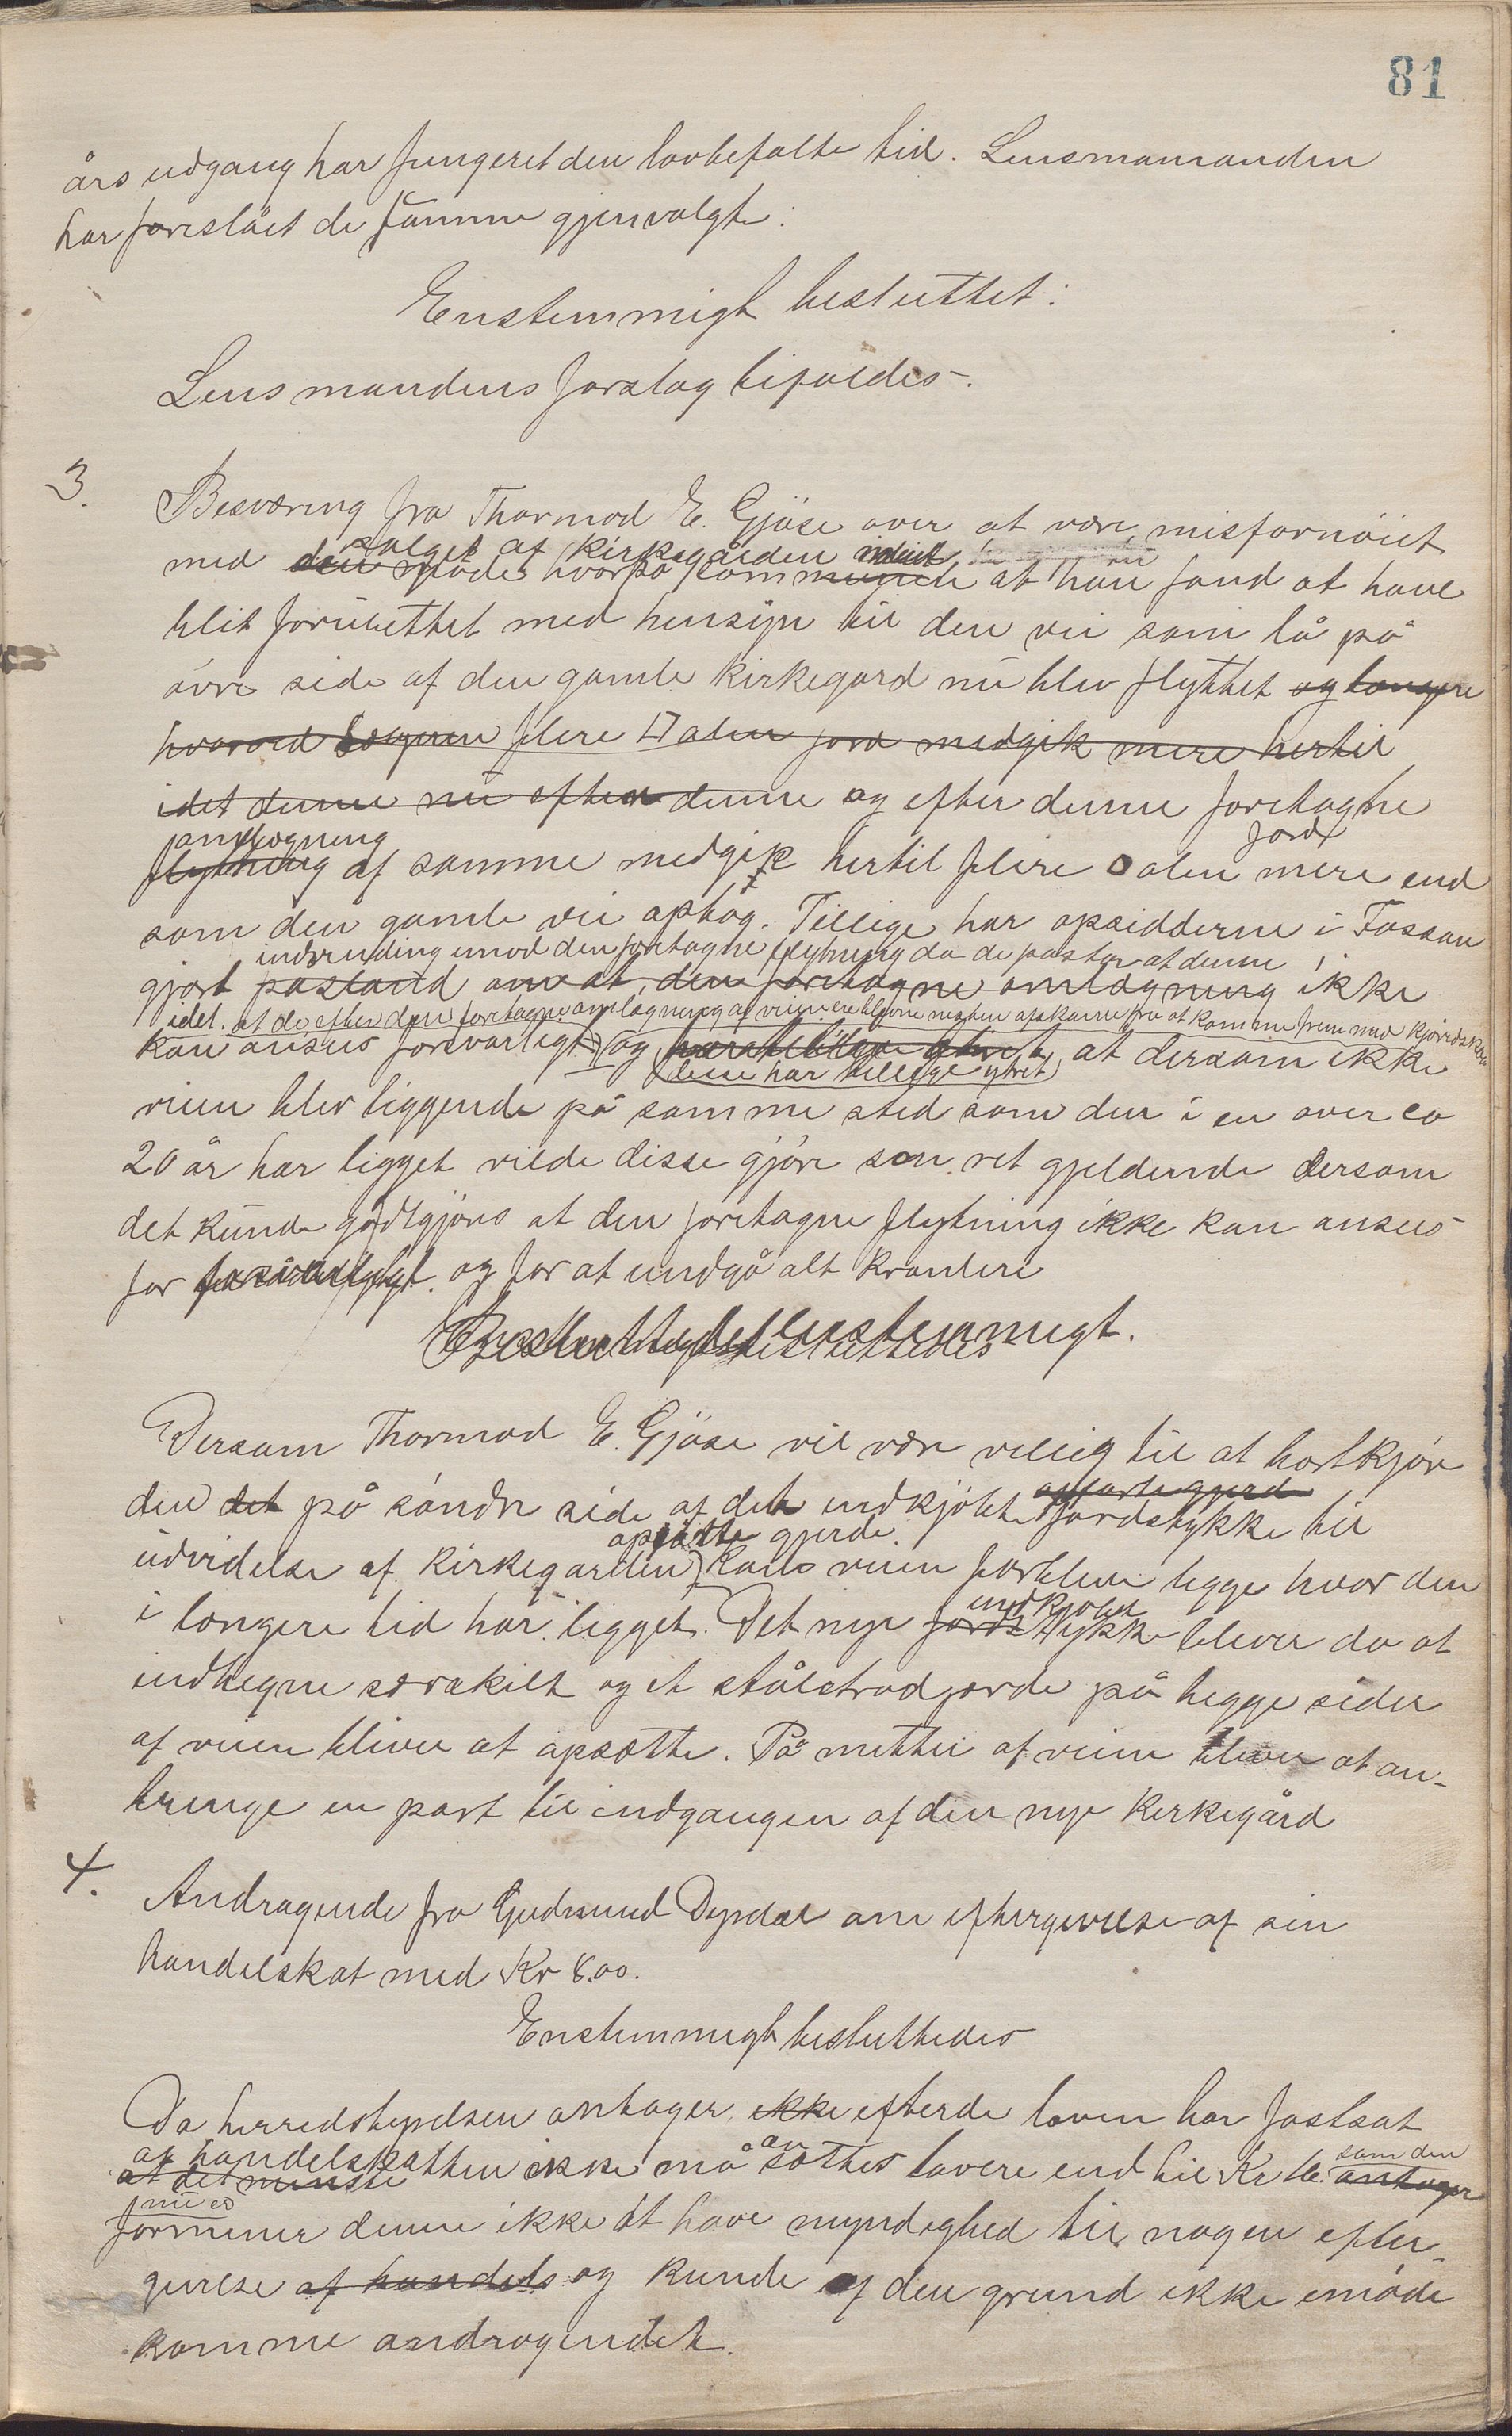 81
års udgang har fungeret den lovbefalte tid. Lensmanmanden
har foreslået de samme gjenvalgte:
Enstemmigt besluttet:
Lensmandens forslag bifaldes.
3. Besværing fra Thormod E. Gjöse over at være misfornöiet
salget af kirkegården
med den måde hvorpå kommunen at han fand at have
blit forurettet med hensyn til den vei som lå på
övre side af den gamle kirkegard nu blev flyttet og længre
hvorved flere □ alen jord medgik mere hertil
idet denne nu efter denne og efter denne foretagne
omlægning jord
flytning af samme medgik hertil flere □ alen mere end
som den gamle vei optog. Tillige har opsidderne i Fossan
indvending imod den foretagne flytning da de påstår at denne
gjort påstand om at den foretagne omlægning ikke
idet at de efter den foretagne omlægning af veien ere blevne næsten afskarne fra at komme frem med kjöredskab
kan ansees forsvarligt og at dersom ikke
disse har tillige ytret
veien blev liggende på samme sted som den i en over ca
20 år har ligget vilde disse gjöre sin ret gjeldende dersom
det kunde godtgjöres at den foretagne flytning ikke kan ansees
for forsvarligt og for at undgå alt kranteri
Besluttedes enstemmigt.
Dersom Thormod E. Gjöse vil være villig til at bortkjöre
opsatte gjerde
den det på söndre side af det indkjöbte jordstykke til
opsatte gjerde
udvidelse af kirkegarden kan veien forblive ligge hvor den
indkjöbte
i længere tid har ligget. Det nye jordstykke bliver da at
indhegne særskilt og et stålstrådgjærde på begge sider
af veien bliver at opsætte. På midten af veien bliver at an-
bringe en port til indgangen af den nye kirkegård
4. Andragende fra Gudmund Dysdal om eftergivelse af sin
handelskat med Kr 8.00.
Enstemmigt besluttedes
Da herredstyrelsen antager ikke efterde loven har fastsat
at handelskatten ikke må ansættes lavere end til Kr 16. som den
at det mindste antager
nu er
formener denne ikke at have myndighed til nogen efter-
givelse af handels og kunde af den grund ikke imöde
komme andragendet.